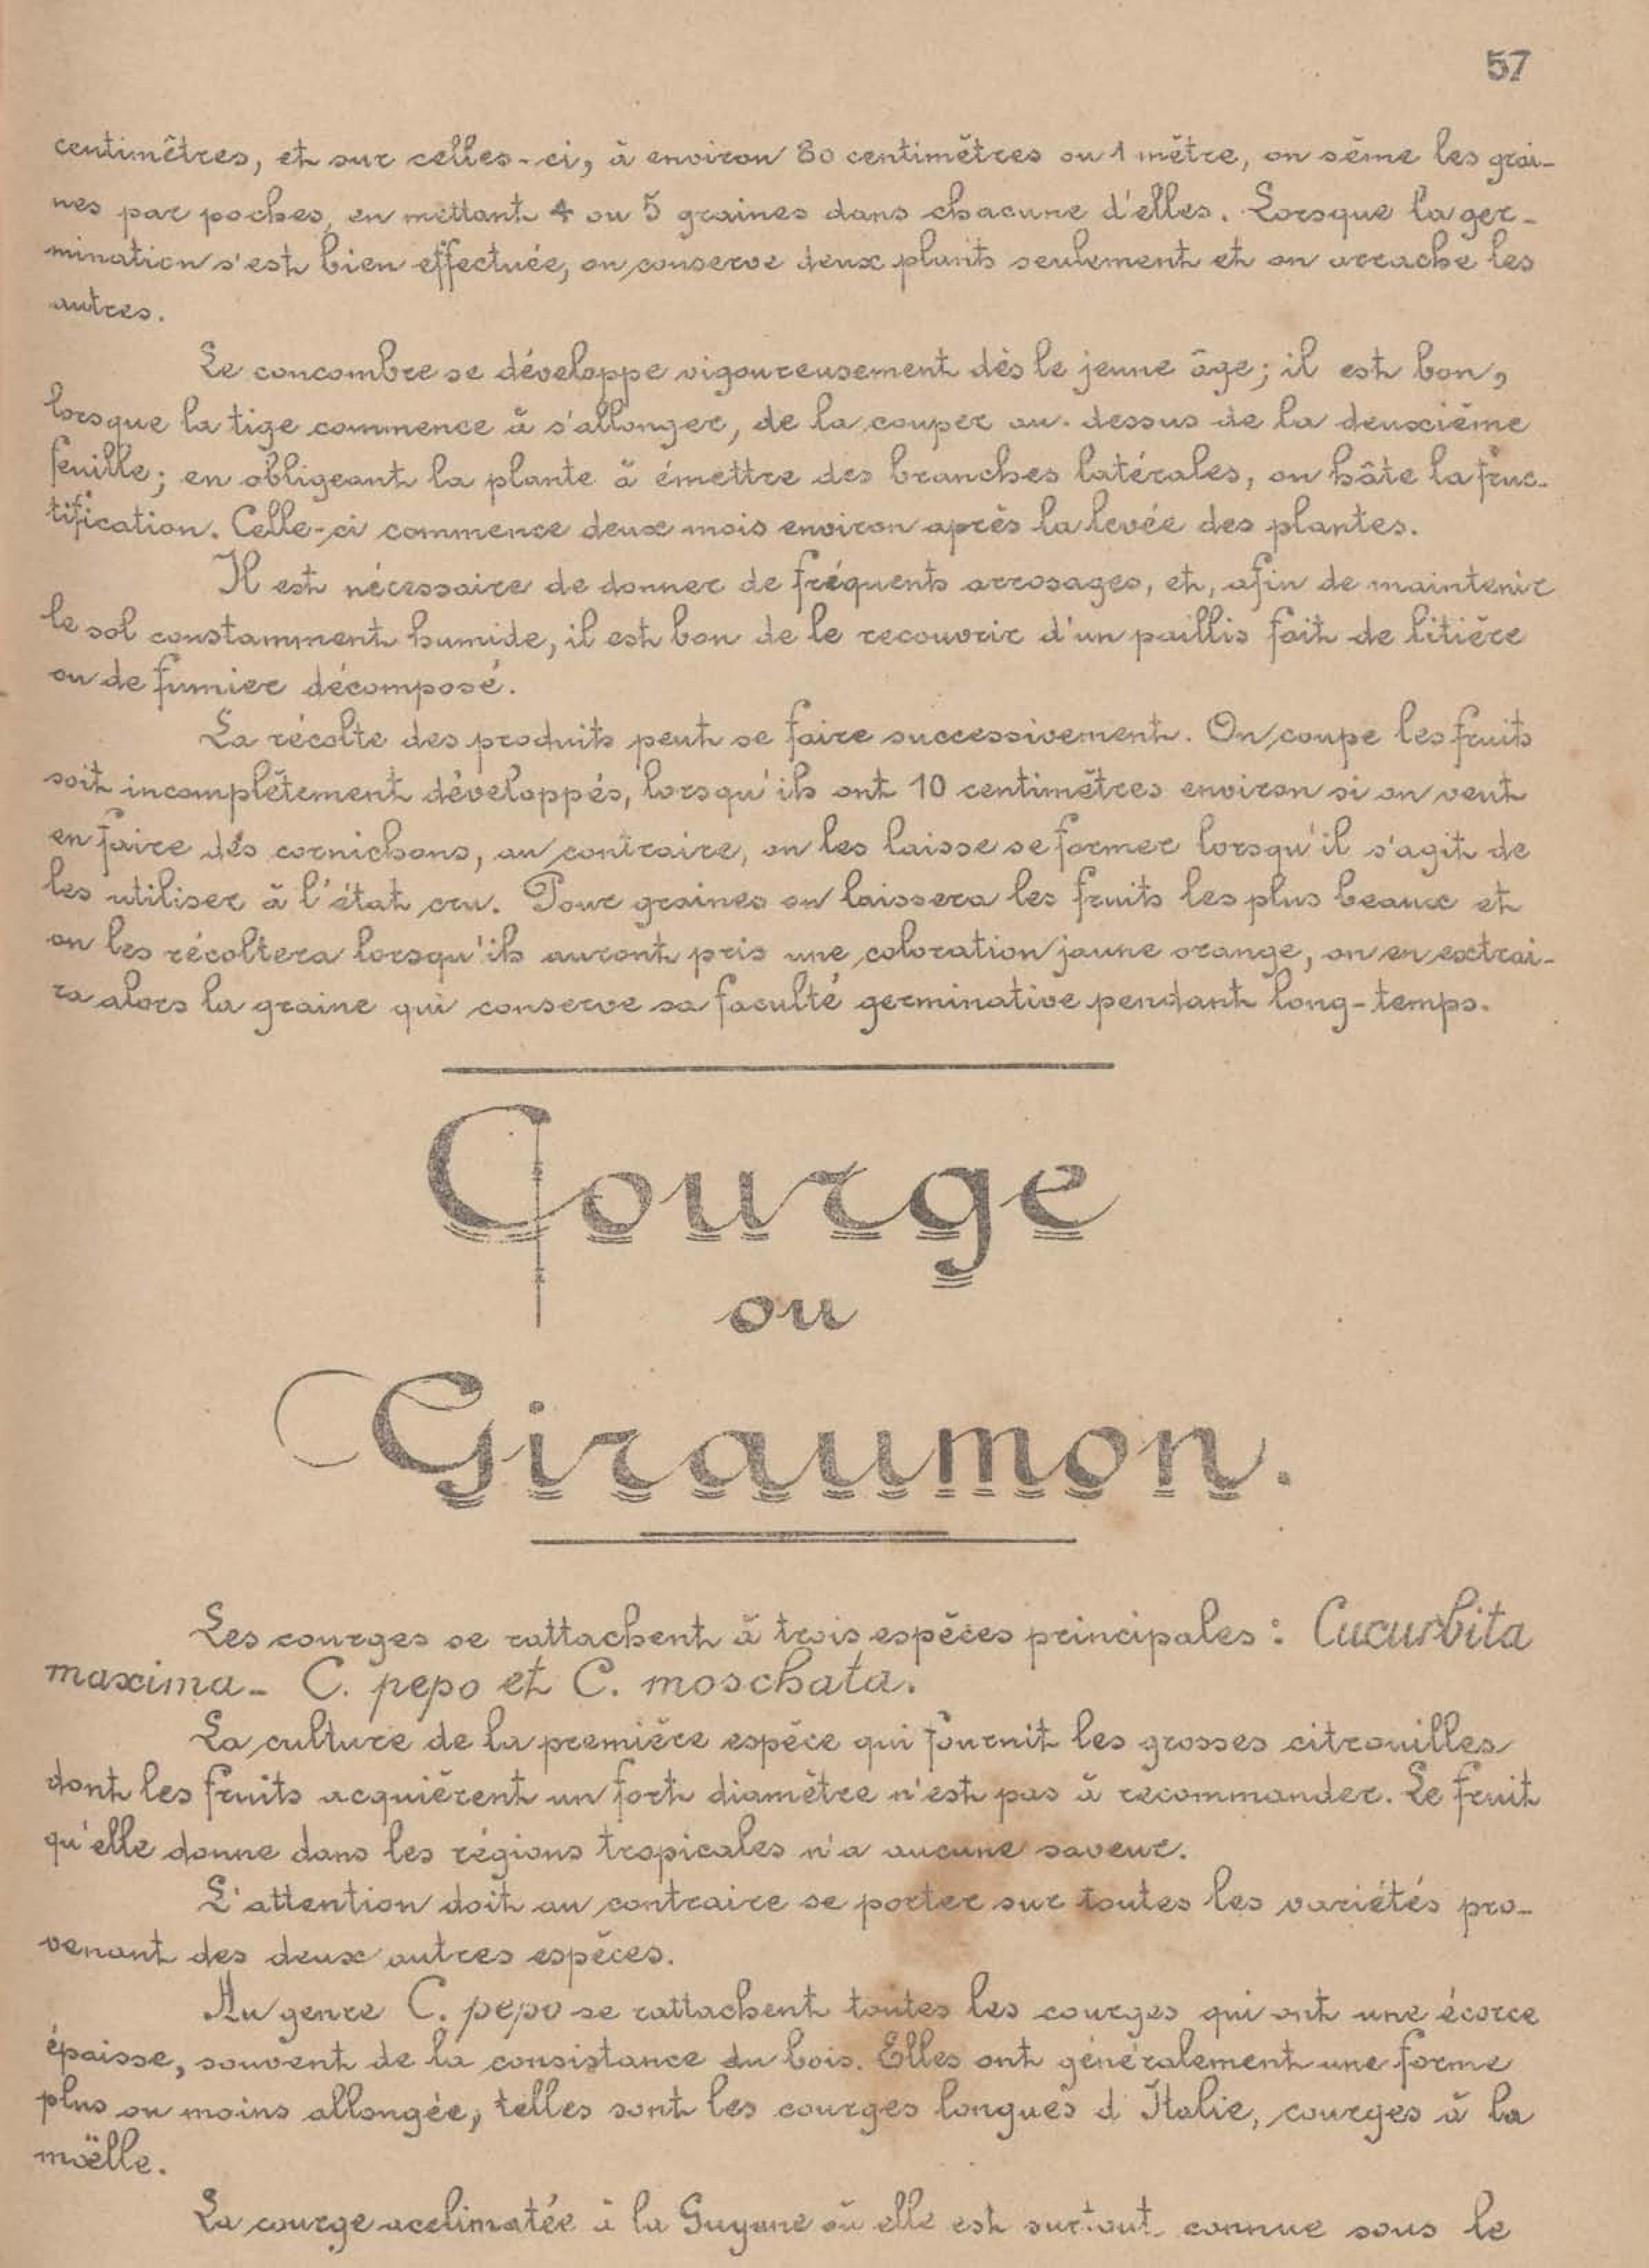 57
centimètres, et sur celles-ci, à environ 80 centimètres ou 1 mètre, on sème les grai-
nes par poches, en mettant 4 ou 5 graines dans chacune d'elles. Lorsque la ger-
mination s'est bien effectuée, on conserve deux plants seulement et on arrache les
autres.
Le concombre se développe vigoureusement dès le jeune âge; il est bon,
lorsque la tige commence à s'allonger, de la couper au-dessus de la deuxième
feuille; en obligeant la plante à émettre des branches latérales, on hâte la fruc-
tification. Celle-ci commence deux mois environ après la levée des plantes.
Il est nécessaire de donner de fréquents arrosages, et, afin de maintenir
le sol constamment humide, il est bon de le recouvrir d'un paillis fait de litière
ou de fumier décomposé.
La récolte des produits peut se faire successivement. On coupe les fruits
soit incomplètement développés, lorsqu'ils ont 10 centimètres environ si on veut
en faire des cornichons, au contraire, on les laisse se former lorsqu'il s'agit de
les utiliser à l'état cru. Pour graines on laissera les fruits les plus beaux et
on les récoltera lorsqu'ils auront pris une coloration jaune orange, on en extrai-
ra alors la graine qui conserve sa faculté germinative pendant long-temps.
Courge
ou
Giraumon.
Les courges se rattachent à trois espèces principales : Cucurbita
maxima - C. pepo et C. moschata.
La culture de la première espèce qui fournit les grosses citrouilles
dont les fruits acquièrent un fort diamètre n'est pas à recommander. Le fruit
qu'elle donne dans les régions tropicales n'a aucune saveur.
L'attention doit au contraire se porter sur toutes les variétés pro-
venant des deux autres espèces.
Au genre C. pepo se rattachent toutes les courges qui ont une écorce
épaisse, souvent de la consistance du bois. Elles ont généralement une forme
plus ou moins allongée, telles sont les courges longues d'Italie, courges à la
moëlle.
La courge acclimatée à la Guyane où elle est surtout connue sous le